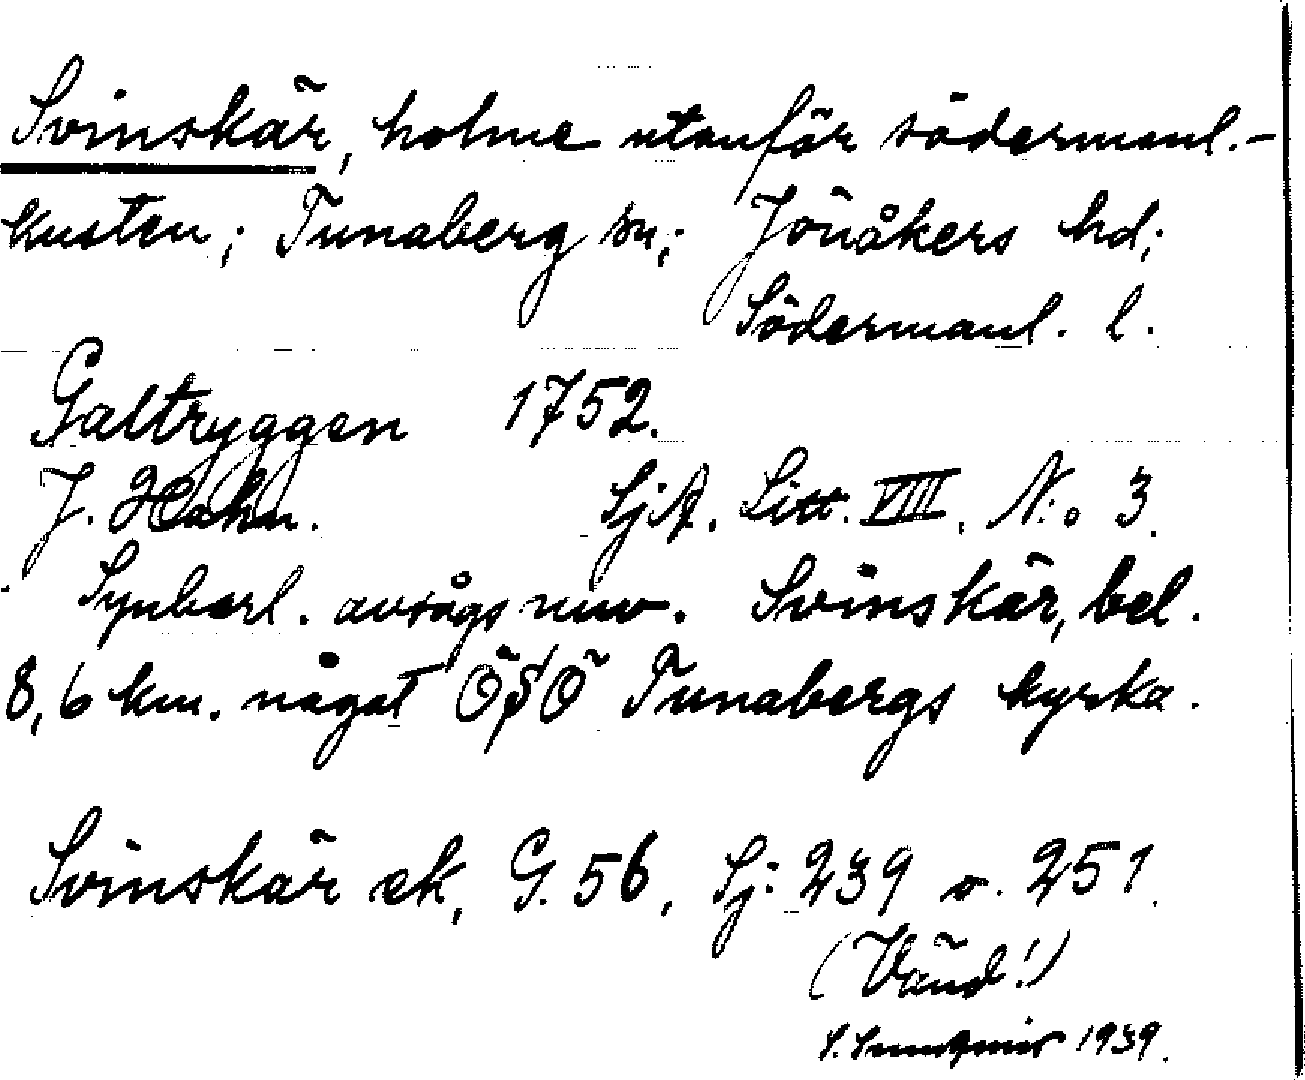 Svinskär, holme utanför södermanl.-
kusten; Tunaberg sn; Jönåkers hd;
Södermanl. l.
Galtryggen 1752.
J. Hahn. SjA. Litt. VIII, N:o 3.
Synbarl. avsågs nuv. Svinskär, bel.
8,6 km. något ÖSÖ Tunabergs kyrka.
Svinskär ek, G. 56, Sj: 239 o. 251.
(Vänd!)
1939.